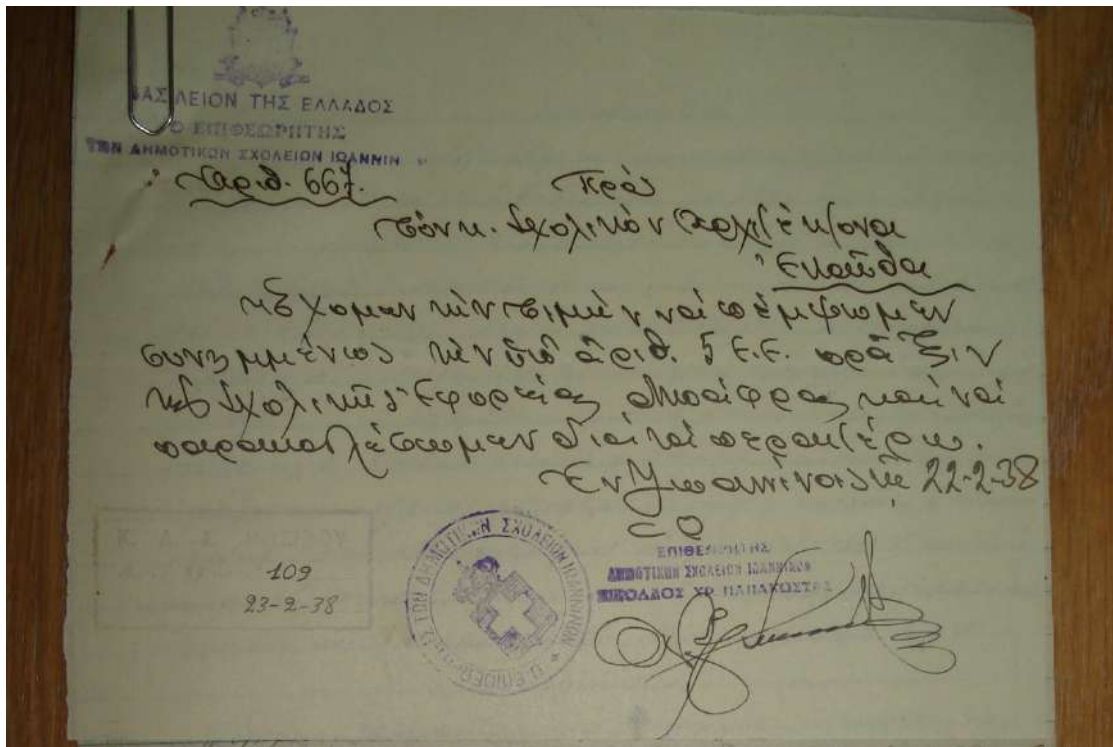 ΒΑΣΙΛΕΙΟΝ ΤΗΣ ΕΛΛΑΔΟΣ
Ο ΕΠΙΘΕΩΡΗΤΗΣ
ΤΩΝ ΔΗΜΟΤΙΚΩΝ ΣΧΟΛΕΙΩΝ ΙΩΑΝΝΙΝ
Ἀριθ. 667.
Πρὸς
τὸν κ. Σχολικὸν Ἀρχιτέκτονα
Ἐνταῦθα
Ἔχομεν τὴν τιμὴν νὰ πέμψωμεν
συνημμένως τὴν ὑπ' ἀριθ. 5 ἔ.ἔ. πρᾶξιν
τῆς Σχολικῆς Ἐφορείας καὶ νὰ
παρακαλέσωμεν διὰ τὰ περαιτέρω.
Ἐν Ἰωαννίνοις τῇ 22-2-38
Ὁ
ΕΠΙΘΕΩΡΗΤΗΣ
ΔΗΜΟΤΙΚΩΝ ΣΧΟΛΕΙΩΝ ΙΩΑΝΝΙΝΩΝ
ΝΙΚΟΛΑΟΣ ΧΡ. ΠΑΠΑΚΩΣΤΑΣ
109
23-2-38
Ο ΕΠΙΘΕΩΡΗΤΗΣ ΤΩΝ ΔΗΜΟΤΙΚΩΝ ΣΧΟΛΕΙΩΝ ΙΩΑΝΝΙΝΩΝ